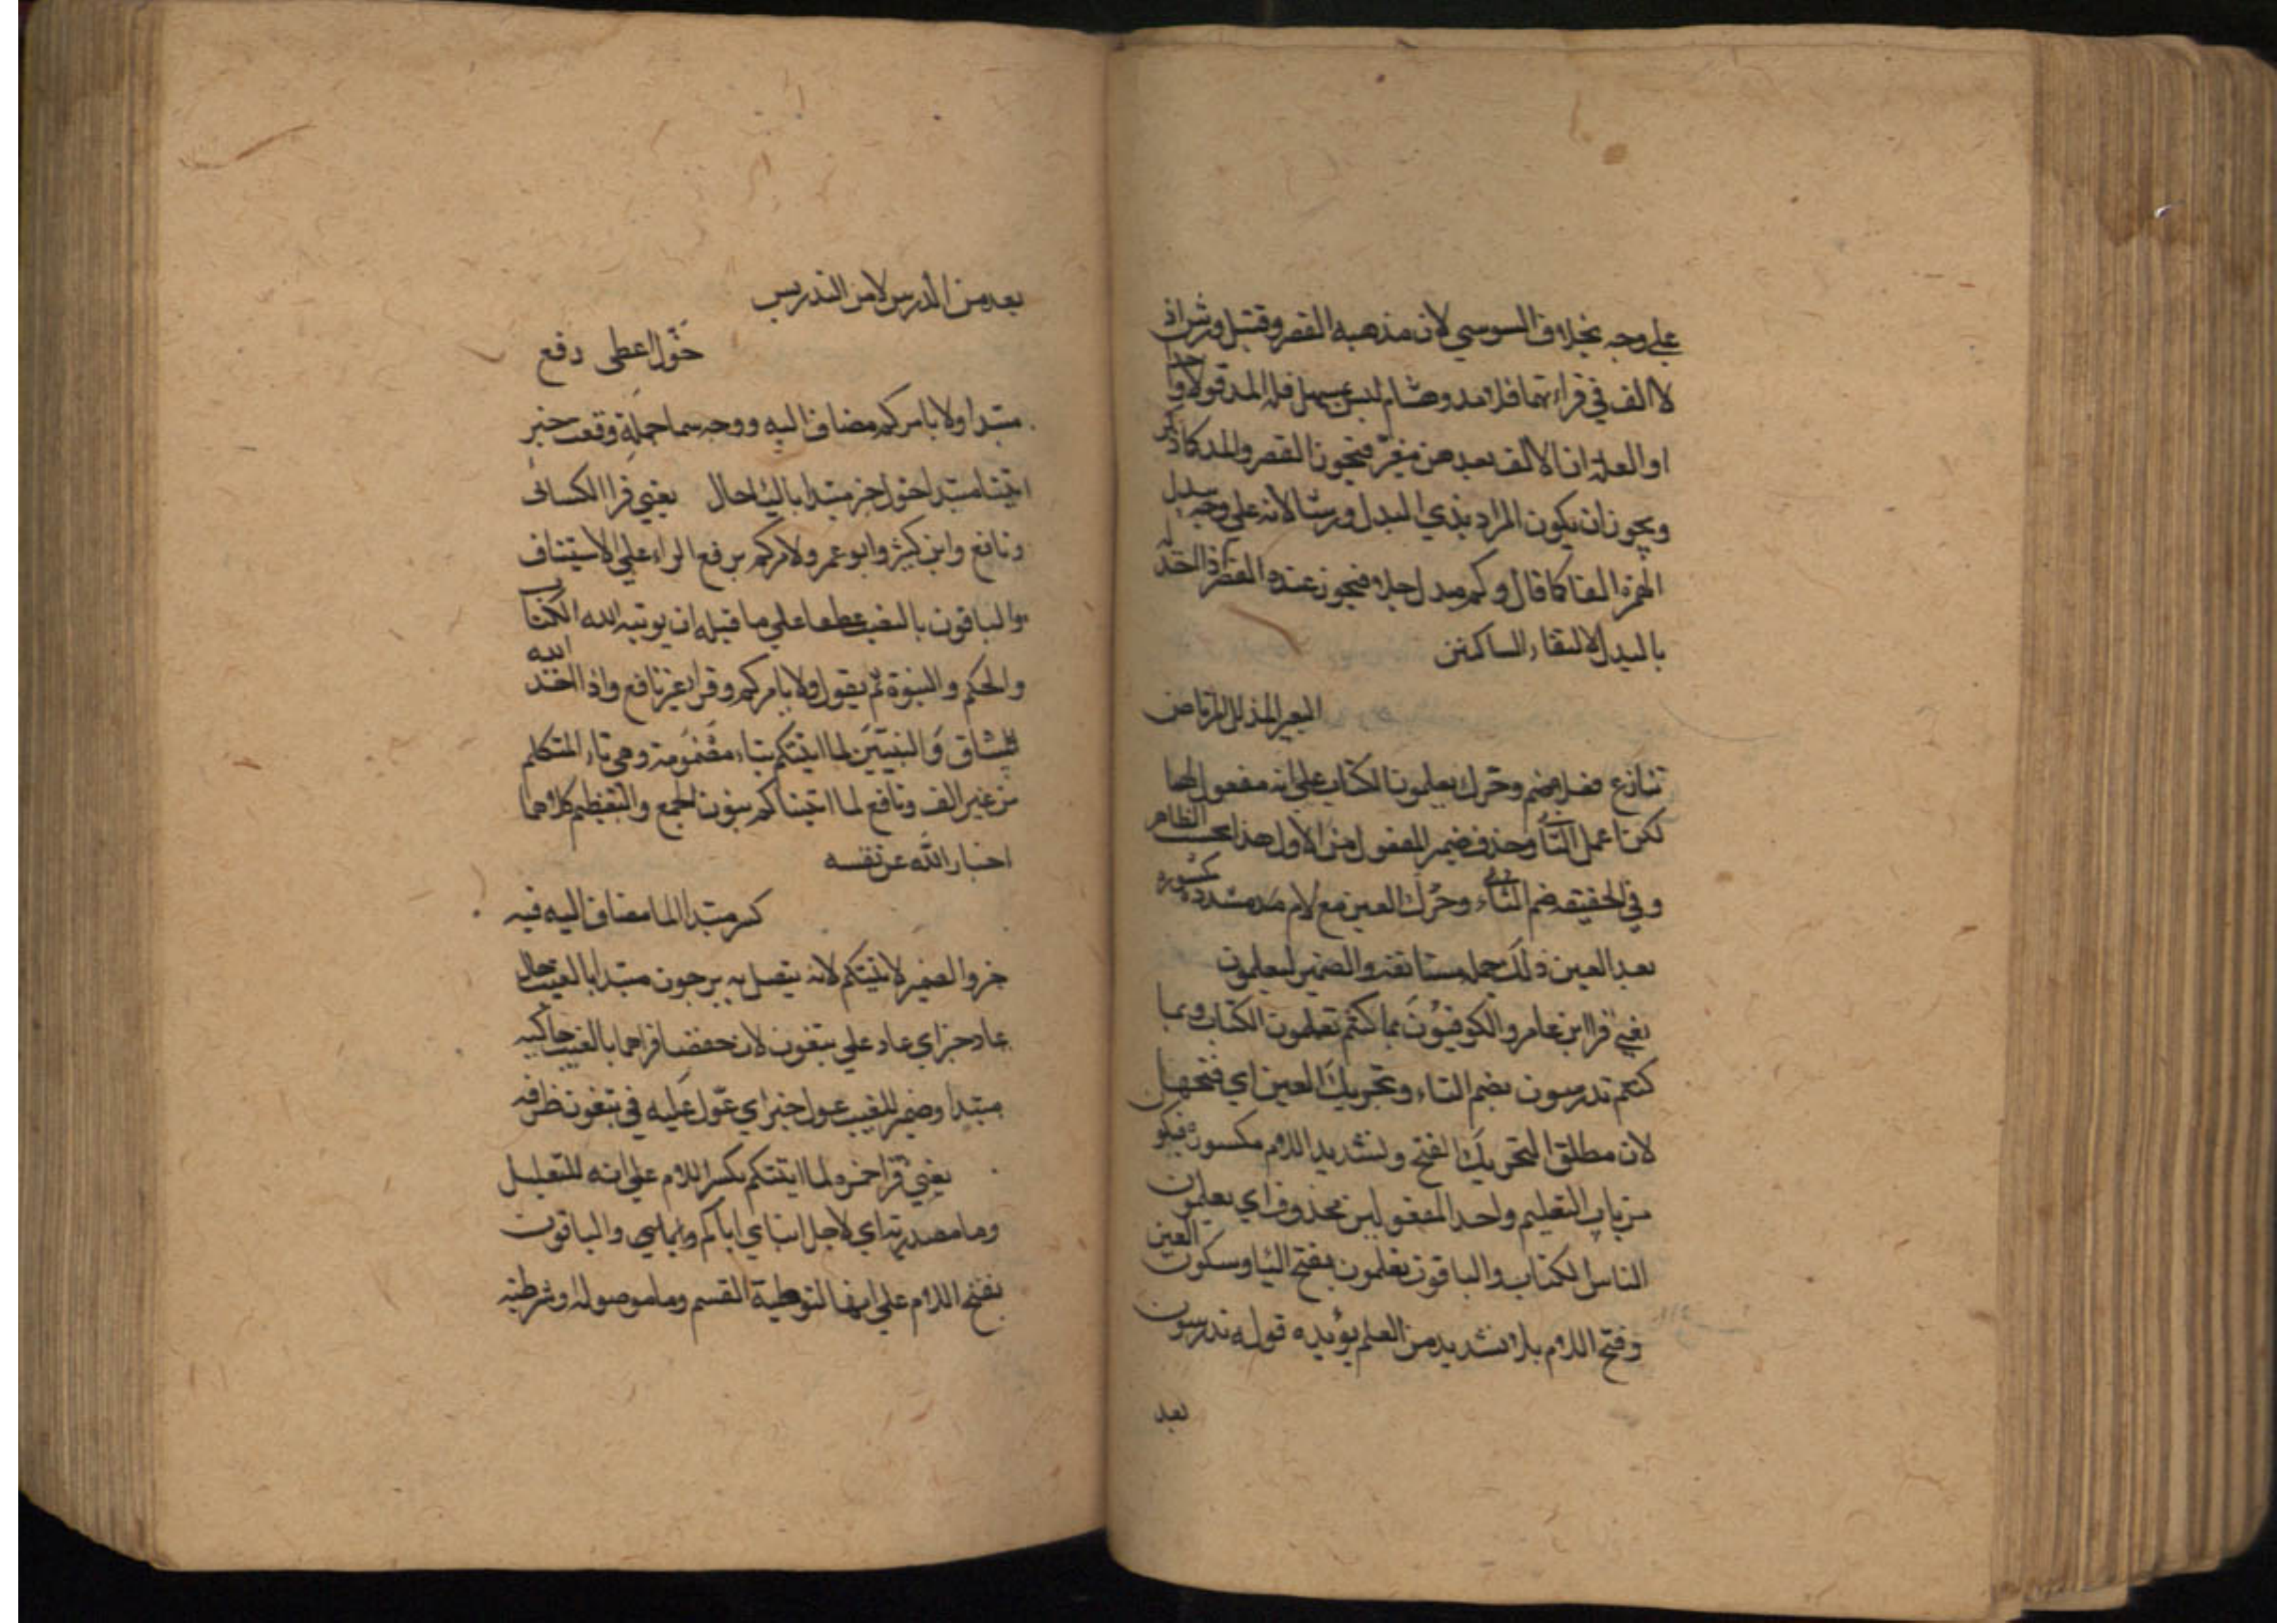 علي وجه بخلاف السوسي لان مذهبه القصر وقنبل وورش اذ
لا الف في قراءتهما فلا مد وهشام ليس بمسهل فله المد قولا واحدا
او العلة ان الالف بعد همز مغير فيجوز القصر والمد كما ذكر
ويجوز ان يكون المراد بذي البدل ورشا لانه علي وجه يبدل
الهمزة الفا كما قال وكم مبدل جلا فيجوز عنده القصر اذ المد له
بالبدل لالتقاء الساكنين
البعير المذلل المرتاض
تنازع فضل ضم وحرك يعلمون الكتاب علي انه مفعول لهما
لكن اعمل الثاني وحذف ضمير المفعول من الاول هذا بحسب الظاهر
وفي الحقيقة ضم التاء وحرك العين مع لام مشددة مكسورة
بعد العين ذلك جملة مستانفة والضمير ليعلمون
يعني قرا ابن عامر والكوفيون بما كنتم تعلمون الكتاب وبما
كنتم تدرسون بضم التاء وتحريك العين اي فتحها
لان مطلق التحريك الفتح وتشديد اللام مكسورة فيكون
من باب التعليم واحد المفعولين محذوف اي يعلمون
الناس الكتاب والباقون تعلمون بفتح التا وسكون العين
وفتح اللام بلا تشديد من العلم يؤيده قوله تدرسون
بعد
بعده من الدرس لا من التدريس
خول اعطى رفع
مبتدا ولا يامركم مضاف اليه ووجه سما جملة وقعت خبر
اتينا مبتدا خول خبر مبتدا بالتا حال يعني قرا الكسائى
ونافع وابن كثير وابو عمر ولا يامركم برفع الراء علي الاستيناف
والباقون بالنصب عطفا علي ما قبله ان يوتيه الله الكتاب
والحكم والنبوة ثم يقول ولا يامركم وقرا غير نافع واذ اخذ الله
ميثاق النبيين لما اتيتكم بتاء مضمومة وهي تاء المتكلم
من غير الف ونافع لما اتيناكم بنون الجمع والتعظيم كلاهما
اخبار الله عن نفسه
كسر مبتدا لما مضاف اليه فيه
خبر والضمير لاتيتكم لانه يتصل به يرجعون مبتدا بالغيب حال
عاد خبر اي عاد علي يبغون لان حفصا قراهما بالغيب حاكيه
مبتدا وضمير للغيب عول خبر اي عول عليه في يبغون ظرفه
يعني قرا حمزه لما اتيتكم بكسر اللام علي انه للتعليل
وما مصدرية اي لاجل ايتاي اياكم والباقون
بفتح اللام علي انها لتوطية القسم وما موصولة او شرطية